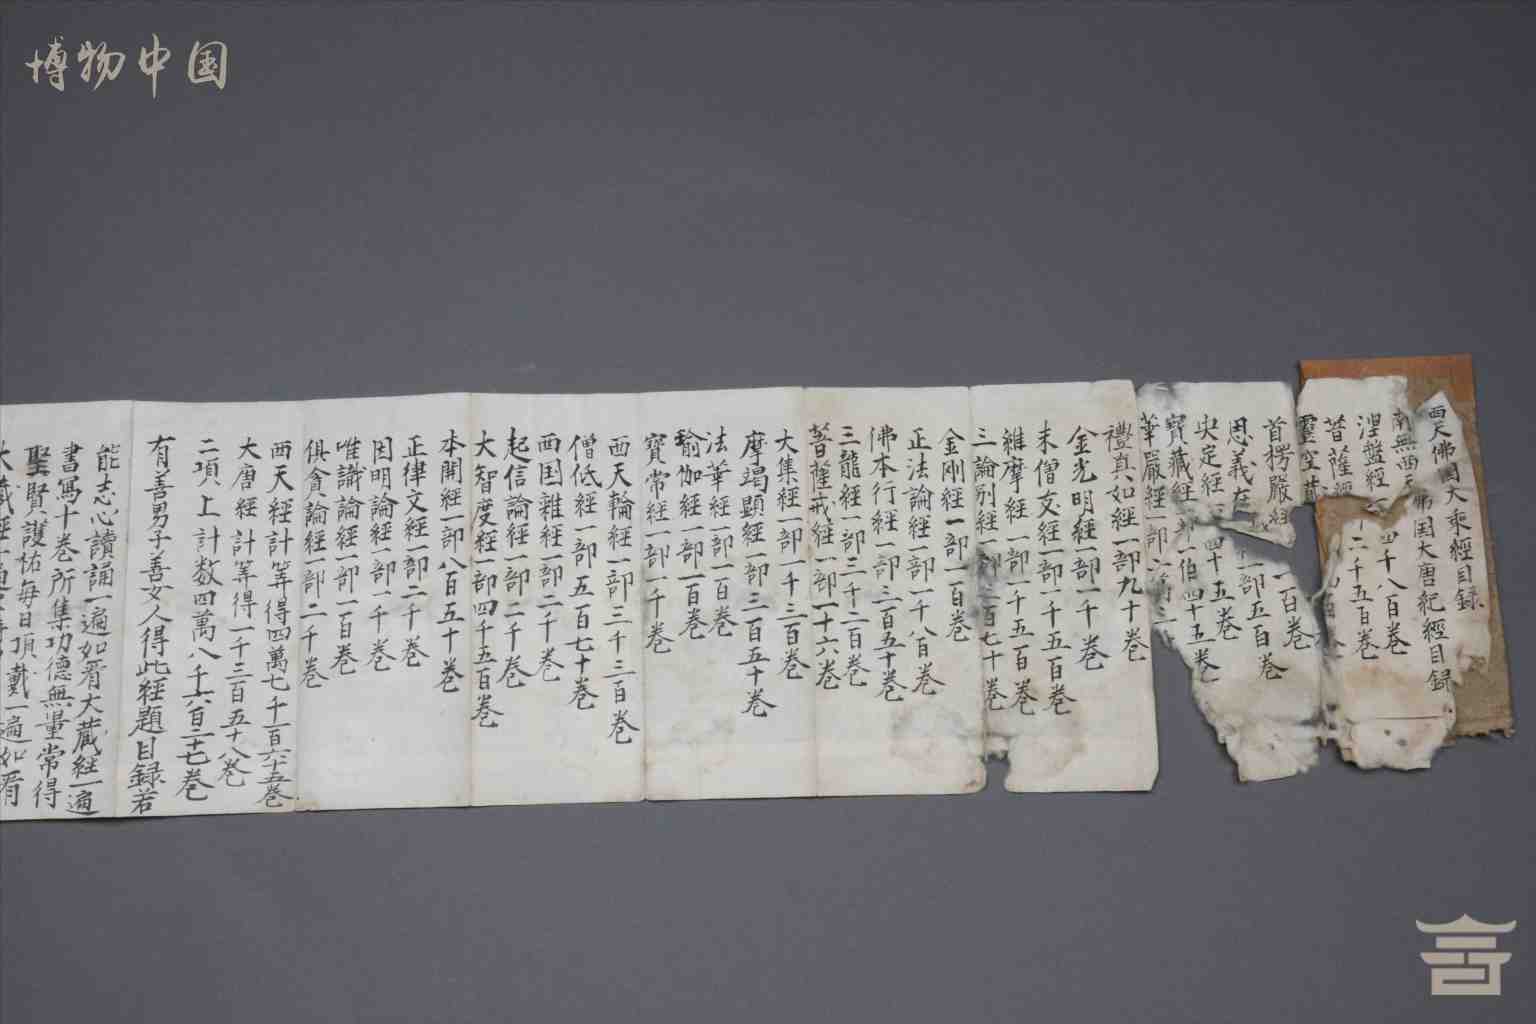 博物中国
西天佛国大乘經目録
佛国大唐紀經目録
南無西天
涅盤經一
四千八百巻
菩薩經
十二千五百巻
靈空藏
首楞嚴經
一百巻
恩義在
一部五百巻
央足經
四十五巻
寳藏經
一伯四十五巻
華嚴經一部
禮真如經一部九十巻
金光明經一部一千巻
未僧文經一部一千五百巻
維摩經一部一千五百巻
三論別經一部二百七十巻
金剛經一部一百巻
正法論經一部一千八百巻
佛本行經一部三百五十巻
三龍經一部三千二百巻
菩薩戒經一部一十六巻
大集經一部一千三百巻
摩竭顕經一部三百五十巻
法華經一部一百巻
瑜伽經一部一百巻
寳常經一部一千巻
西天輪經一部三千三百巻
僧低經一部五百七十巻
西国雜經一部二千巻
起信論經一部二千巻
大智度經一部四千五百巻
本開經一部八百五十巻
正律文經一部二千巻
因明論經一部一千巻
唯識論經一部一百巻
俱貪論經一部二千巻
西天經計等得四萬七千一百六十五巻
大唐經計等得一千三百五十八巻
二項上計数四萬八千六百二十七巻
有善男子善女人得此經題目録若
能志心讀誦一遍如看大藏經一遍
書寫十巻所集功德無量常得
聖賢護佑每日頂戴一遍如看
大藏經一遍